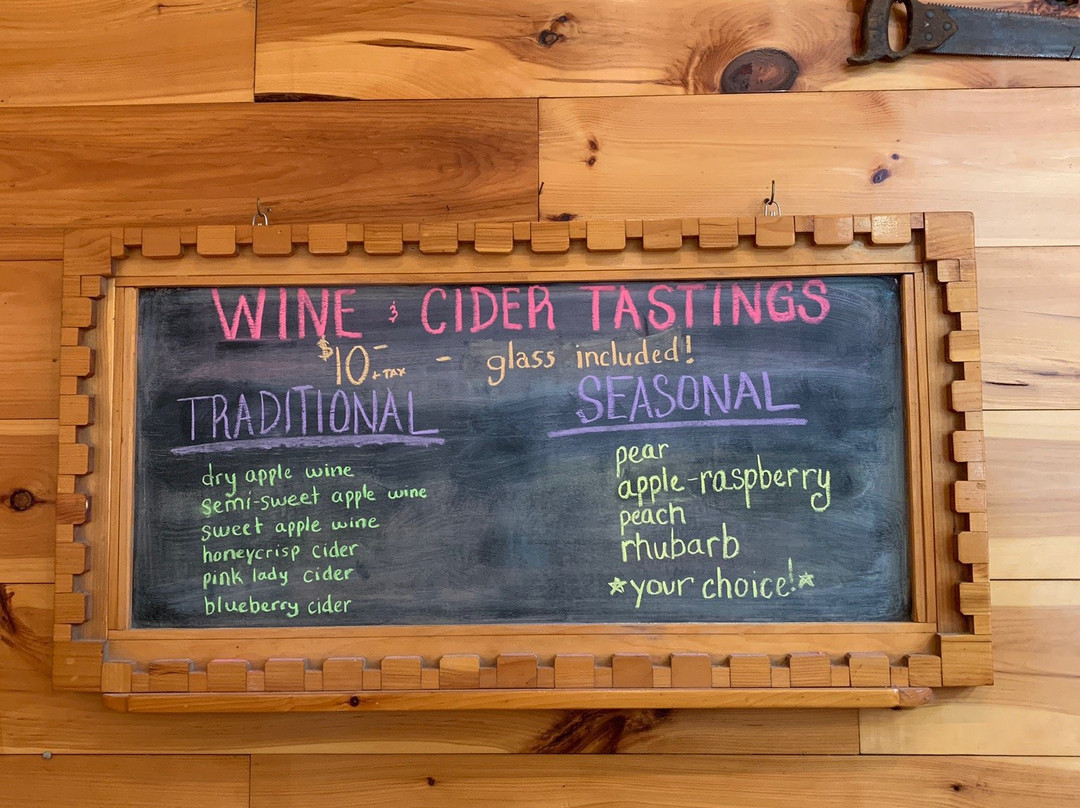 WINE & CIDER TASTINGS
$10- +TAX - glass included!
TRADITIONAL
dry apple wine
semi-sweet apple wine
sweet apple wine
honeycrisp cider
pink lady cider
blueberry cider
SEASONAL
pear
apple-raspberry
peach
rhubarb
☆your choice!☆